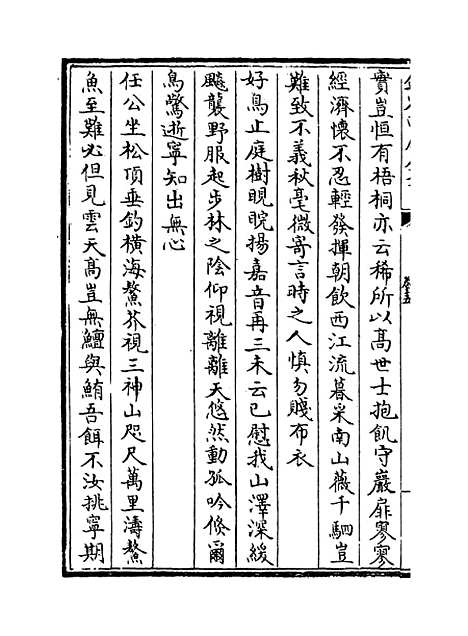 實豈恒有梧桐亦云稀所以高世士抱飢守巖扉寥寥
經濟懷不忍輕發揮朝飲西江流暮采南山薇千駟豈
難致不義秋毫微寄言時之人慎勿賤布衣
好鳥止庭樹睍睆揚嘉音再三未云已慰我山澤深緩
飈襲野服起步林之陰仰視離離天悠然動孤吟倏爾
鳥驚逝寧知出無心
任公坐松頂垂釣橫海鰲芥視三神山咫尺萬里濤鰲
魚至難必但見雲天高豈無鱣與鮪吾餌不汝挑寧期